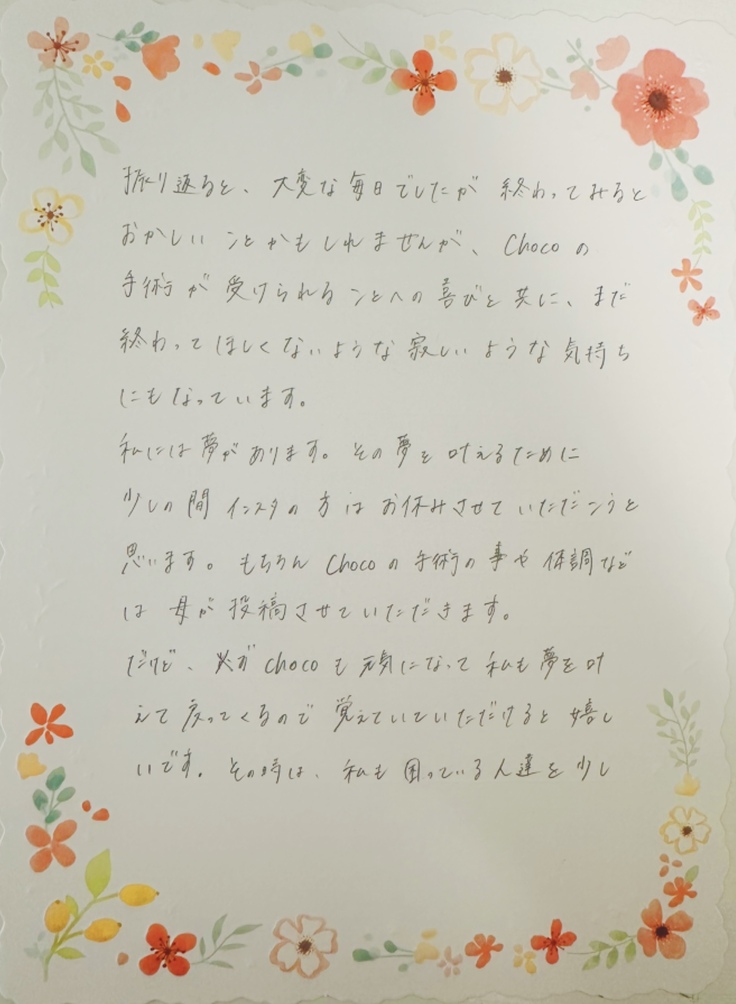 振り返ると、大変な毎日でしたが 終わってみると
おかしい ことかもしれませんが、Chocoの
手術が 受けられることへの喜びと共に、まだ
終わってほしくないような寂しいような気持ち
にもなっています。
私には夢があります。その夢を叶えるために
少しの間 インスタの方は お休みさせていただこうと
思います。もちろん Chocoの手術の事や 体調など
は 母が投稿させていただきます。
だけど、必ずchocoも元気になって 私も夢を叶
えて戻ってくるので 覚えていていただけると嬉し
いです。その時は、私も困っている人達を少し